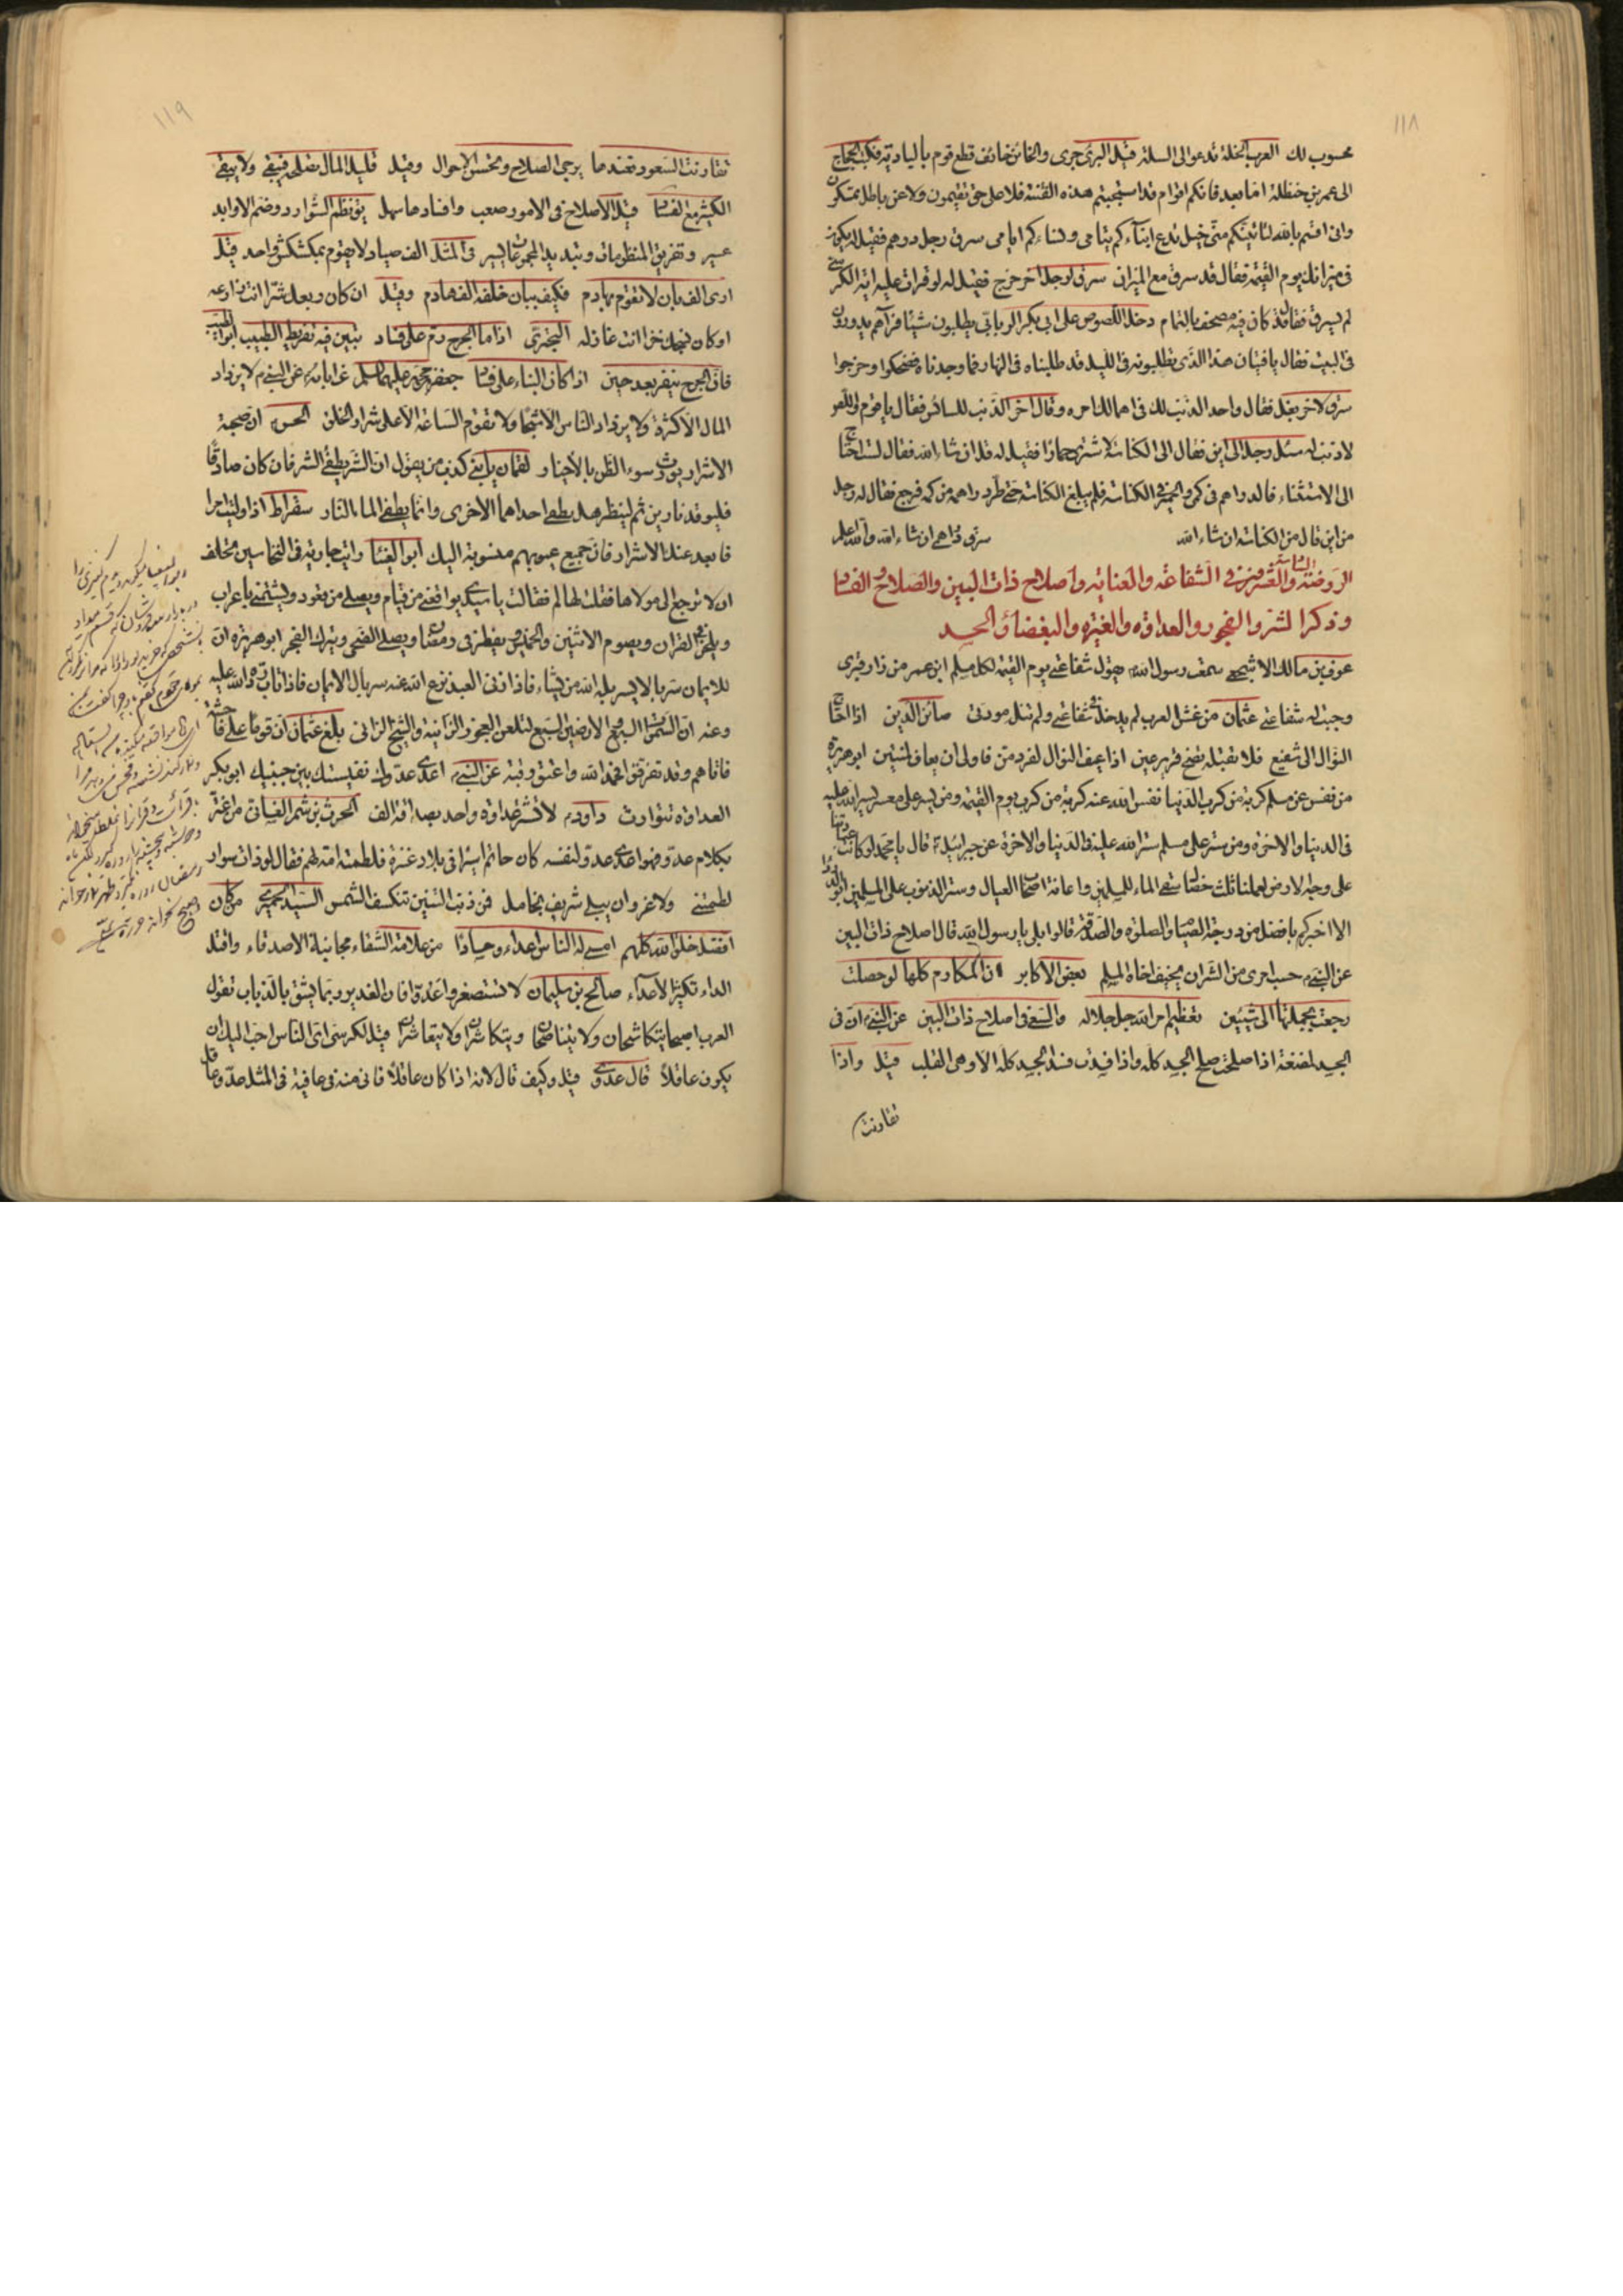 ١١٨
محسوب لك العرب الخلة تدعو الى السلة قيل البرئ جرى والخائن خائف قطع قوم بالبادية فكتب الحجاج
الى عمر بن حنظلة اما بعد فانكم اقوام قد استحببتم هذه الفتنة فلا على حق تقيمون ولا عن باطل تمسكون
وانى اقسم بالله لتاتينكم منى خيل تدع ابناءكم يتامى ونساءكم ايامى سرق رجل درهم فقيل له يكون
فى ميزانك يوم القيمة فقال قد سرق مع الميزان سرق لرجل اخر خرج فقيل له لو قرات عليه اية الكرسى
لم يسرق فقال قد كان فيه مصحف بالتمام دخل اللصوص على ابى بكر الربانى يطلبون شيئا فرآهم يدورون
فى البيت فقال يا فتيان هذا الذى تطلبونه فى الليل قد طلبناه فى النهار فما وجدناه فضحكوا وخرجوا
سرق لاخر بغل فقال واحد الذنب لك فى اهمالك امره وقال اخر الذنب للسائس فقال يا قوم واللص
لا ذنب له سئل رجل الى اين فقال الى الكناسة لاشترى حمارا فقيل له قل ان شاء الله فقال لست احتاج
الى الاستثناء فالدراهم فى كمى والحمير فى الكناسة فلم يبلغ الكناسة حتى طر دراهمه من كمه فرجع فقال له رجل
من اين قال من الكناسة ان شاء الله سرق دراهمى ان شاء الله والله اعلم
الروضة السابعة والعشرون فى الشفاعة والعناية واصلاح ذات البين والصلاح والفساد
وذكر الشر والفجور والعداوة والغيرة والبغضاء والحسد
عوف بن مالك الاشجعى سمعت رسول الله يقول شفاعتى يوم القيمة لكل مسلم ابن عمر من زار قبرى
وجبت له شفاعتى عثمان من غش العرب لم يدخل فى شفاعتى ولم تنله مودتى صائن الدين اذا احتاج
النوال الى شفيع فلا تقبله تضح قرير عين اذا عيف النوال لفرد من فاولى ان يعاف لمنتين ابو هريرة
من نفس عن مسلم كربة من كرب الدنيا نفس الله عنه كربة من كرب يوم القيمة ومن يسر على معسر يسر الله عليه
فى الدنيا والاخرة ومن ستر على مسلم ستر الله عليه فى الدنيا والاخرة عن جبرائيل قال يا محمد لو كانت عبادتنا
على وجه الارض لعملنا ثلث خصال سقى الماء للمسلمين واعانة اصحاب العيال وستر الذنوب على المسلمين ابو الدرداء
الا اخبركم بافضل من درجة الصيام والصلوة والصدقة قالوا بلى يا رسول الله قال اصلاح ذات البين
عن النبى حسب امرى من الشر ان يخيف اخاه المسلم بعض الاكابر ان المكارم كلها لو حصلت
رجعت بجملتها الى شيئين تعظيم امر الله جل جلاله والسعى فى اصلاح ذات البين عن النبى ان فى
الجسد لمضغة اذا صلحت صلح الجسد كله واذا فسدت فسد الجسد كله الا وهى القلب قيل واذا
تقارنت
١١٩
تقارنت السعود فعندها يرجى الصلاح وتحسن الاحوال وقيل قليل المال تصلحه فيبقى ولا يبقى
الكثير مع الفساد قيل الاصلاح فى الامور صعب وافسادها سهل ونظم الشوارد وضم الاوابد
عسير وتفريق المنظومات وتبديد المجموعات يسير فى المثل الف صياد لا يقوم بمكشكش واحد قيل
ارى الف بان لا تقوم بهادم فكيف ببان خلفه الف هادم وقيل ان كان ربعك شرا انت زارعه
او كان نهجك خيرا انت غارزله البحترى اذا ما الجرح رم على فساد تبين فيه تفريط الطبيب
فان الجرح ينفر بعد حين اذا كان البناء على فساد جعفر بن محمد عليهما السلم عن ابائه عن النبى لا يزداد
المال الا كثرة ولا يزداد الناس الا شحا ولا تقوم الساعة الا على شرار الخلق الحسن ان صحبة
الاشرار يورث سوء الظن بالاخيار لقمان يا بنى كذب من يقول ان الشر يطفئ الشر فان كان صادقا
فليوقد نارين ثم لينظر هل يطفى احداهما الاخرى وانما يطفى الماء النار سقراط اذا وليت امرا
فابعد عنك الاشرار فان جميع عيوبهم منسوبة اليك ابو العيناء رايت جارية فى النخاسين تحلف
ان لا ترجع الى مولاها فقلت لها لم فقالت يا سيدى يواقعنى من قيام ويصلى من قعود ويشتمنى باعراب
ويلحن فى القران ويصوم الاثنين والخميس ويفطر فى رمضان ويصلى الضحى ويترك الفجر ابو هريرة ان
للايمان سربالا يسربله الله من يشاء فاذا زنى العبد نزع الله عنه سربال الايمان فاذا تاب رده الله عليه
وعنه ان السموات السبع والارضين السبع لتلعن العجوز الزانية والشيخ الزانى بلغ عثمان ان قوما على فاحشة
فاتاهم وقد تفرقوا فحمد الله واعتق رقبة عن النبى اعدى عدوك نفسك بين جنبيك ابو بكر
العداوة تتوارث داود لا تشتر عداوة واحد بصداقة الف الحرث بن شمر الغسانى من اغتر
بكلام عدوه فهو اعدى عدو لنفسه كان حاتم اسيرا فى بلاد عنزة فلطمته امة لهم فقال لو ذات سوار
لطمتنى ولا غرو ان يبلى شريف بخامل فمن ذنب التنين تنكسف الشمس السيد الحميرى من كان
افضل خلق الله كلهم امسى له الناس اعداء وحسادا من علامة الشقاء مجانبة الاصدقاء واقتل
الداء تكثير الاعداء صالح بن سليمان لا تستصغروا عدوا فان الغدير ربما يشق بالذباب تقول
العرب اصبحا يتكاشحان ولا يتناصحان ويتكاشران ولا يتعاشران قيل لكسرى اى الناس احب اليك ان
يكون عاقلا قال عدوى قيل وكيف قال لانه اذا كان عاقلا فانى منه فى عافية فى المثل عدو عاقل